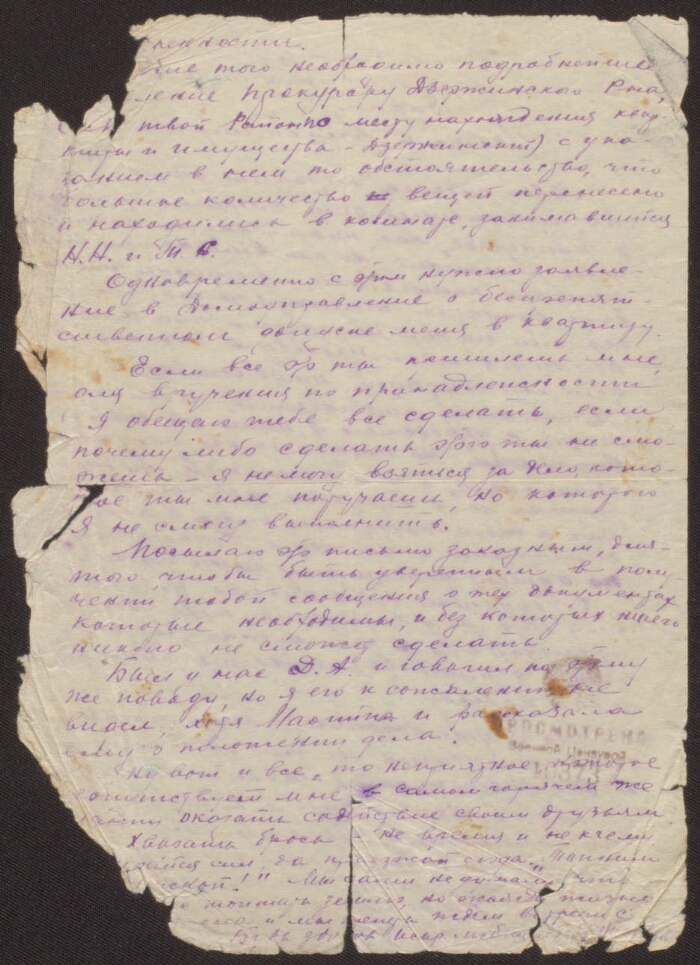 ненности.
того необходимо подробнейшее
Прокурору Дзержинского Р-на,
твой Район по месту нахождения квар
и имущества - Дзержинский) с ука-
занием в нем то обстоятельство, что
большое количество вещей перенесено
и находились в комнате, занимавшейся
Н.Н. и Т.С.
Одновременно с этим нужно заявле-
ние в Домоуправление о беспрепят-
ственном допуске меня в квартиру.
Если все это ты пришлешь мне,
для вручения по принадлежности
Я обещаю тебе все сделать, если
почему либо сделать этого ты не смо-
жешь - я не могу взяться за дело, кото-
рое ты мне поручаешь, но которого
я не смогу выполнить.
Посылаю это письмо заказным, для
того чтобы быть уверенным в полу-
чении тобой сообщения о тех документах
которые необходимы, и без которых ничего
никто не сможет сделать.
Был у нас Д.А. и говорил по этому
же поводу, но я его к сожалению не
видел, хотя и рассказала
ему о положении дела.
Но вот и все, то неприятное, которое
мне в самом горячем же
оказать содействие своим друзьям
Хватать брось - не время и не к чему
сил, да
Мы сами не думали, что
но
и мы
ПРОСМОТРЕНО
Военной Цензурой